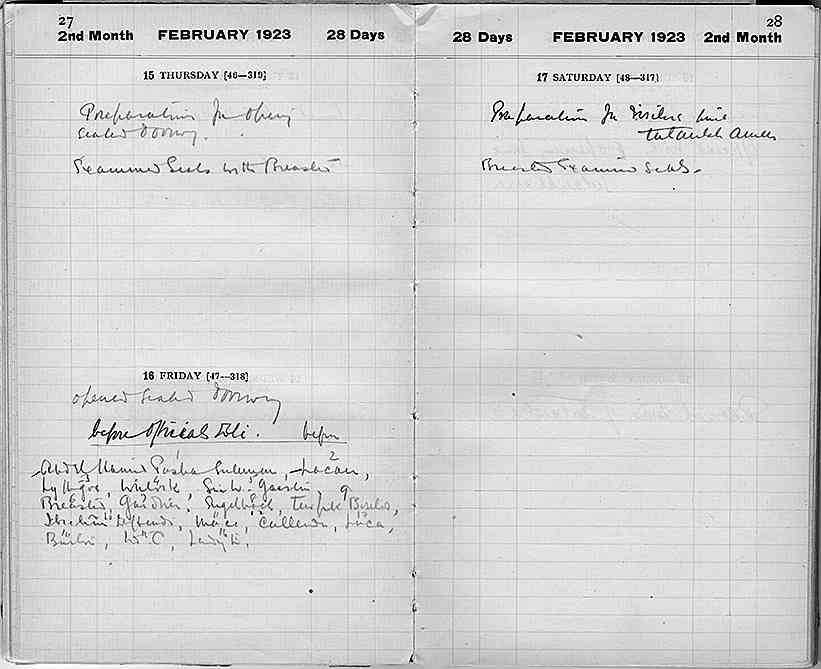 27
2nd Month FEBRUARY 1923 28 Days
15 THURSDAY [46—319]
Preparation for opening
sealed doorway.
Examined Seals with Breasted
16 FRIDAY [47—318]
opened sealed doorway
before official
before
Abd el Hamid Pasha Suleman, Lacau,
Lythgoe, Winlock, Sir W. Garstin,
Breasted, Gardiner, Engelbach,
Ibrahim Effendi, Mace, Callender,
Burton, Ld C, Lady E.
28
28 Days FEBRUARY 1923 2nd Month
17 SATURDAY [48—317]
Preparation for visitors
Breasted Examined Seals.